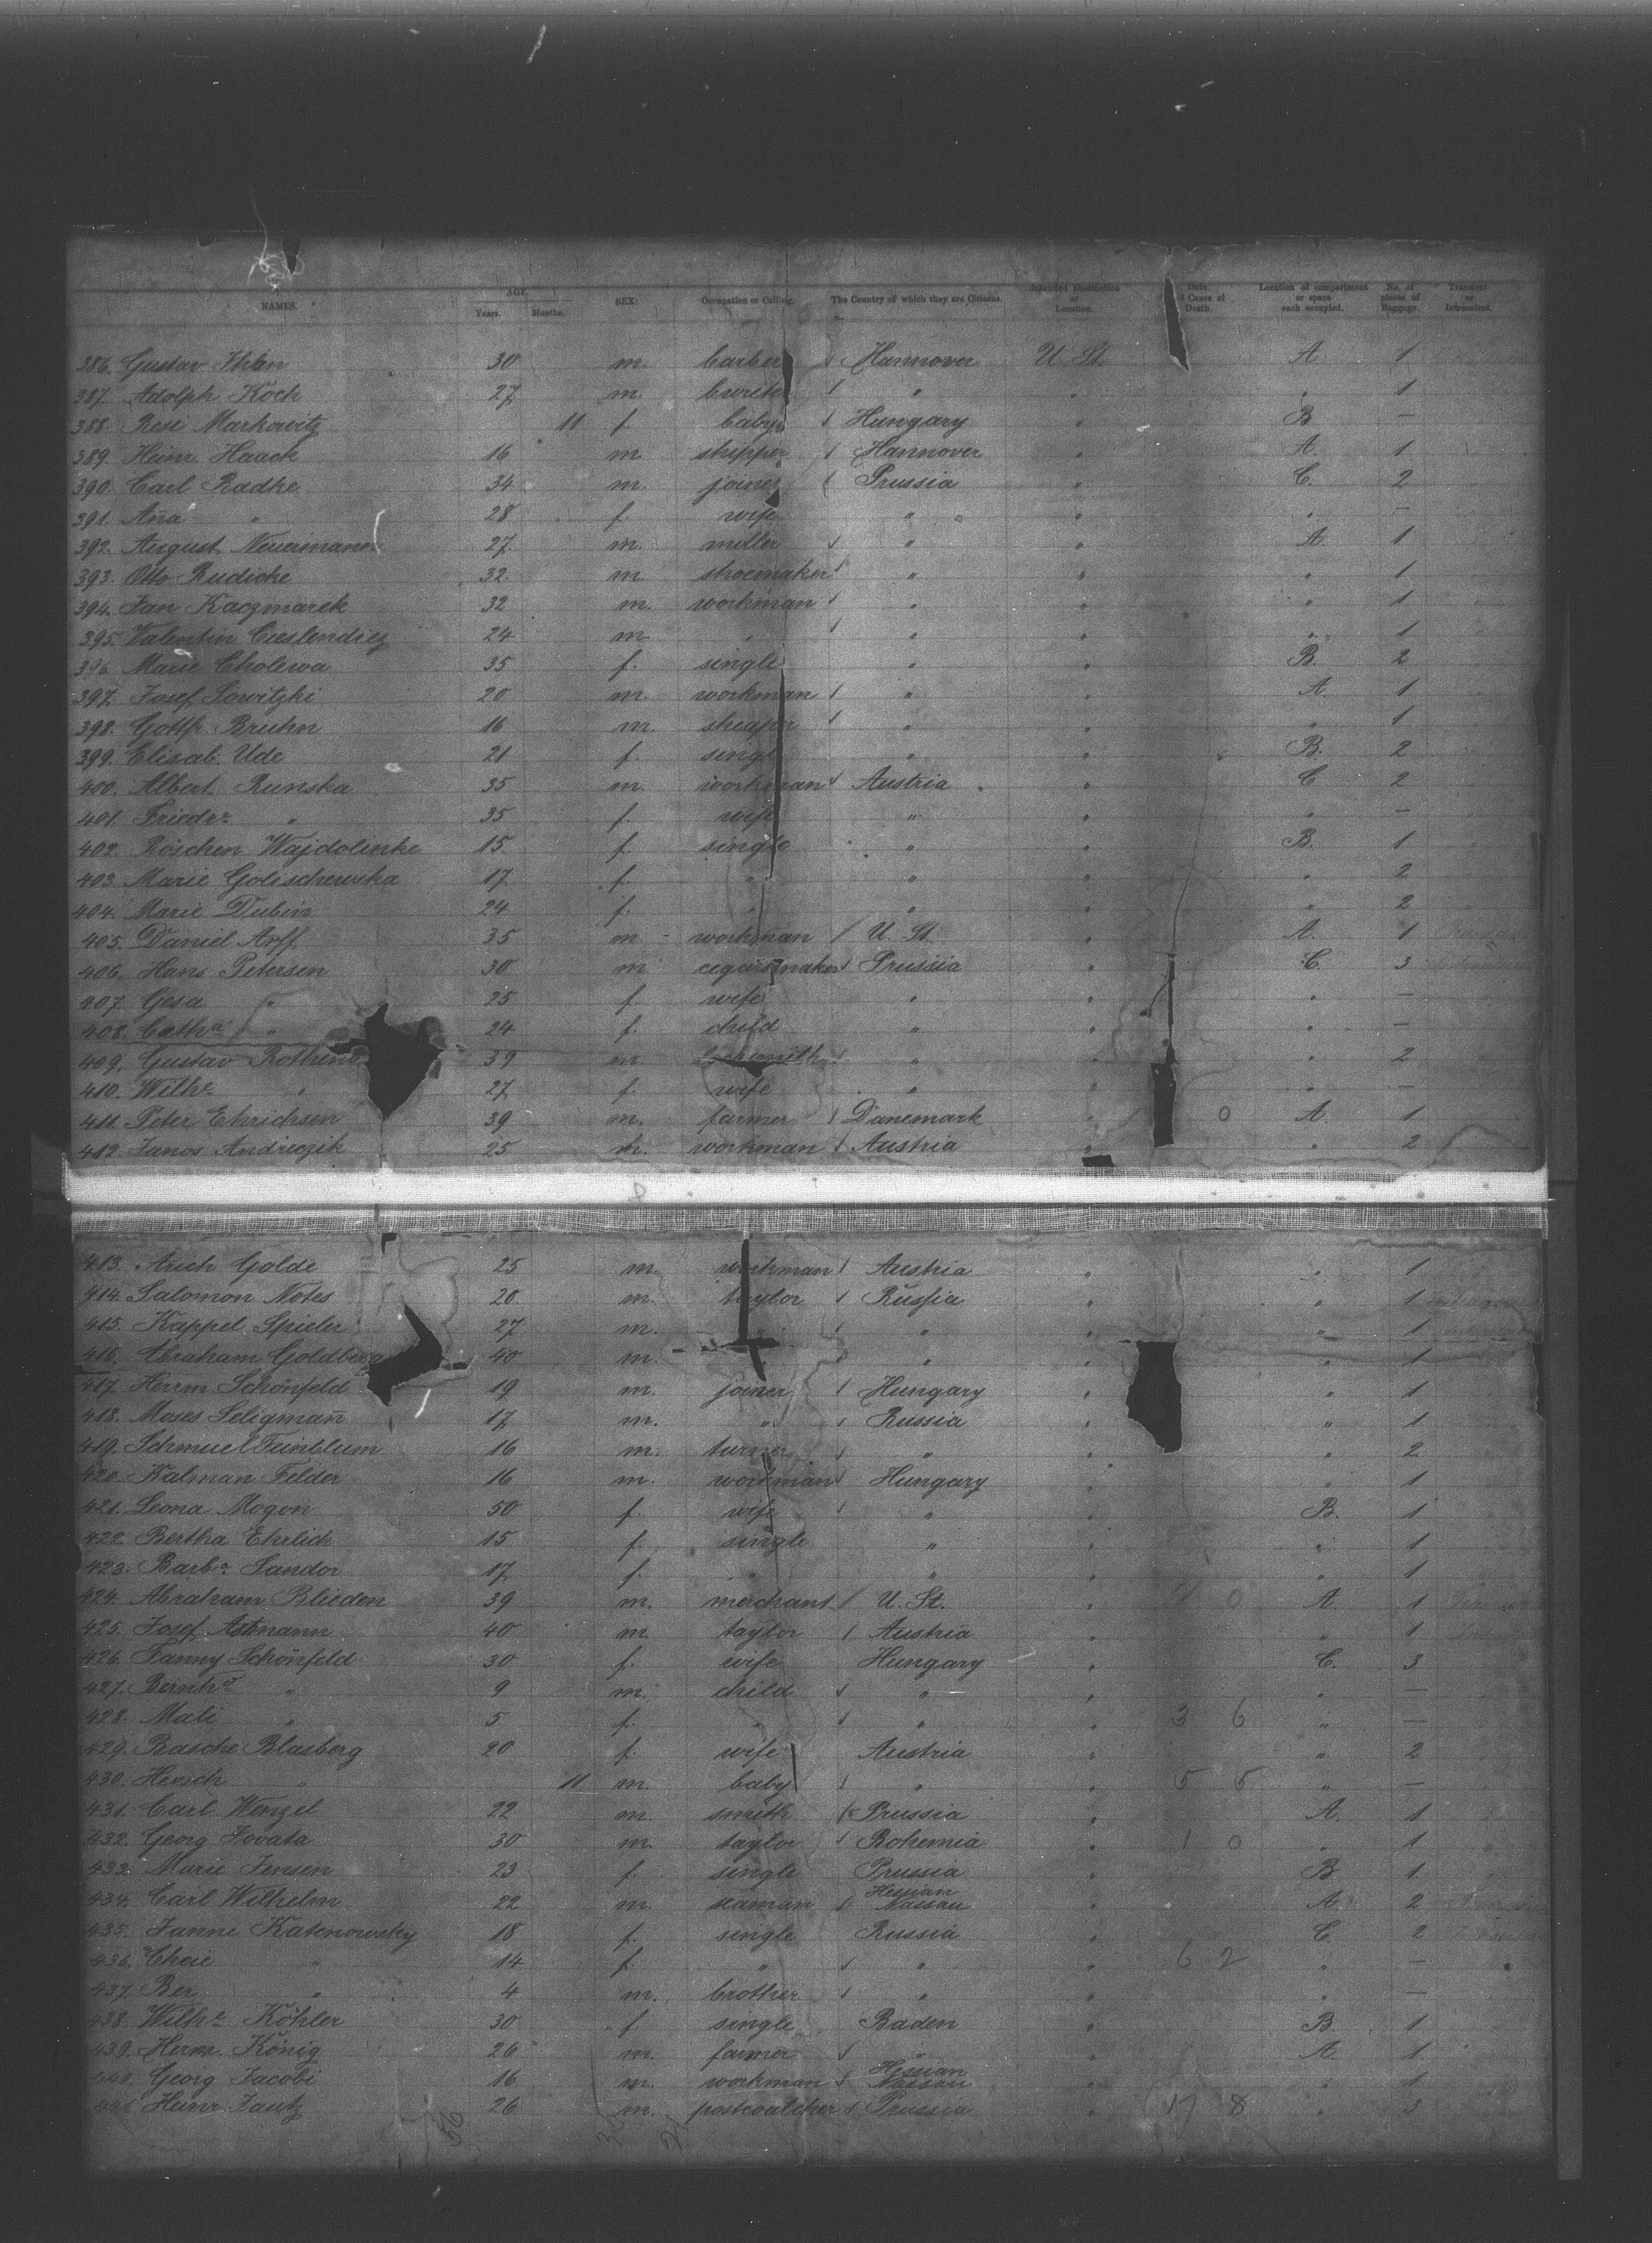 NAMES. AGE. SEX. Occupation or Calling. The Country of which they are Citizens. Intended Destination or Location. Date and Cause of Death. Location of compartment or space each occupied. No. of pieces of Baggage. Transient or Intransient.
Years. Months.
386. Gustav 30 m. barber Hannover U St. A 1
387. Adolph Koch 27 m. " " " 1
388. Resi Markowitz 11 f. baby Hungary " B —
389. Heinr. Haack 16 m shipper Hannover " A. 1
390. Carl Radke 34 m. joiner Prussia " C. 2
391. Aña " 28 f. wife " " " —
392. August Neuermann 27. m. miller " " A. 1
393. Otto Rudicke 32. m. shoemaker " " " 1
394. Jan Kaczmarek 32 m. workman " " " 1
395. Valentin 24 m " " " " 1
396. Marie Cholewa 35 f. single " " B. 2
397. Josef Sowitzki 20 m. workman " " A. 1
398. Gottfr. Bruhn 16 m " " " 1
399. Elisab. Ude 21 f. single " " B. 2
400. Albert Runska 35 m. workman Austria " C 2
401. Friedr. " 35 f. wife " " " —
402. Röschen Wajdolinke 15 f. single " " B. 1
403. Marie Golischewska 17 f. " " " " 2
404. Marie Dubin 24 f. " " " " 2
405. Daniel Arff 35 m workman U. St. " A. 1
406. Hans Petersen 30 m cegarsmaker Prussia " C. 3
407. Gesa " 25 f. wife " " " —
408. Catha " 24 f. child " " " —
409. Gustav 39 m " " " 2
410. Wilhe " 27 f. wife " " " —
411. Peter Ehrichsen 39 m. farmer Danemark " 0 A. 1
412. Janos Andreczik 25 m. workman Austria " " 2
413. Golde 25 m. workman Austria " " 1
414. Salomon Notes 20 m. taylor Russia " " 1
415. Kappel Spieler 27 m. " " " " 1
416. Abraham Goldberg 40 m. " " " 1
417. Herrm Schönfeld 19 m. joiner Hungary " " 1
418. Moses Seligmañ 17 m. " Russia " " 1
419. Schmuel Feinblum 16 m. turner " " " 2
420. Kalman Felder 16 m. workman Hungary " " 1
421. Leona Mogon 50 f. wife " " B. 1
422. Bertha Ehrlich 15 f. single " " " 1
423. Barba Sandor 17 f. " " " " 1
424. Abraham Blieden 39 m. merchant U. St. " 0 A. 1
425. Josef Astmann 40 m. taylor Austria " " 1
426. Fanny Schönfeld 30 f. wife Hungary " C. 3
427. Bernhd " 9 m. child " " " —
428. Mali " 5 f. " " " 3 6 " —
429. Rasche Blasberg 20 f. wife Austria " " 2
430. Hersch " 11 m. baby " " 5 5 " —
431. Carl Wenzel 22 m. smith Prussia " A. 1
432. Georg Jovata 30 m. taylor Bohemia " 1 0 " 1
433. Marie Jensen 23 f. single Prussia " B. 1.
434. Carl Wilhelm 22 m. seaman Hessian Nassau " A. 2
435. Janne Katenowsky 18 f. single Russia " C. 2
436. Cheie " 14 f. " " " 6 2 " —
437. Ber " 4 m. brother " " " —
438. Wilhe Köhler 30 f. single Baden " B. 1
439. Herm. König 26 m. farmer " " A. 1.
440. Georg Jacobi 16 m. workman Hessian Nassau " " 1
441. Heinr. Jautz 26 m. Prussia " 17 8 " 3
56